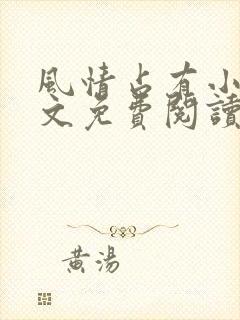 風情占有小
文免費閱讀
黃湯